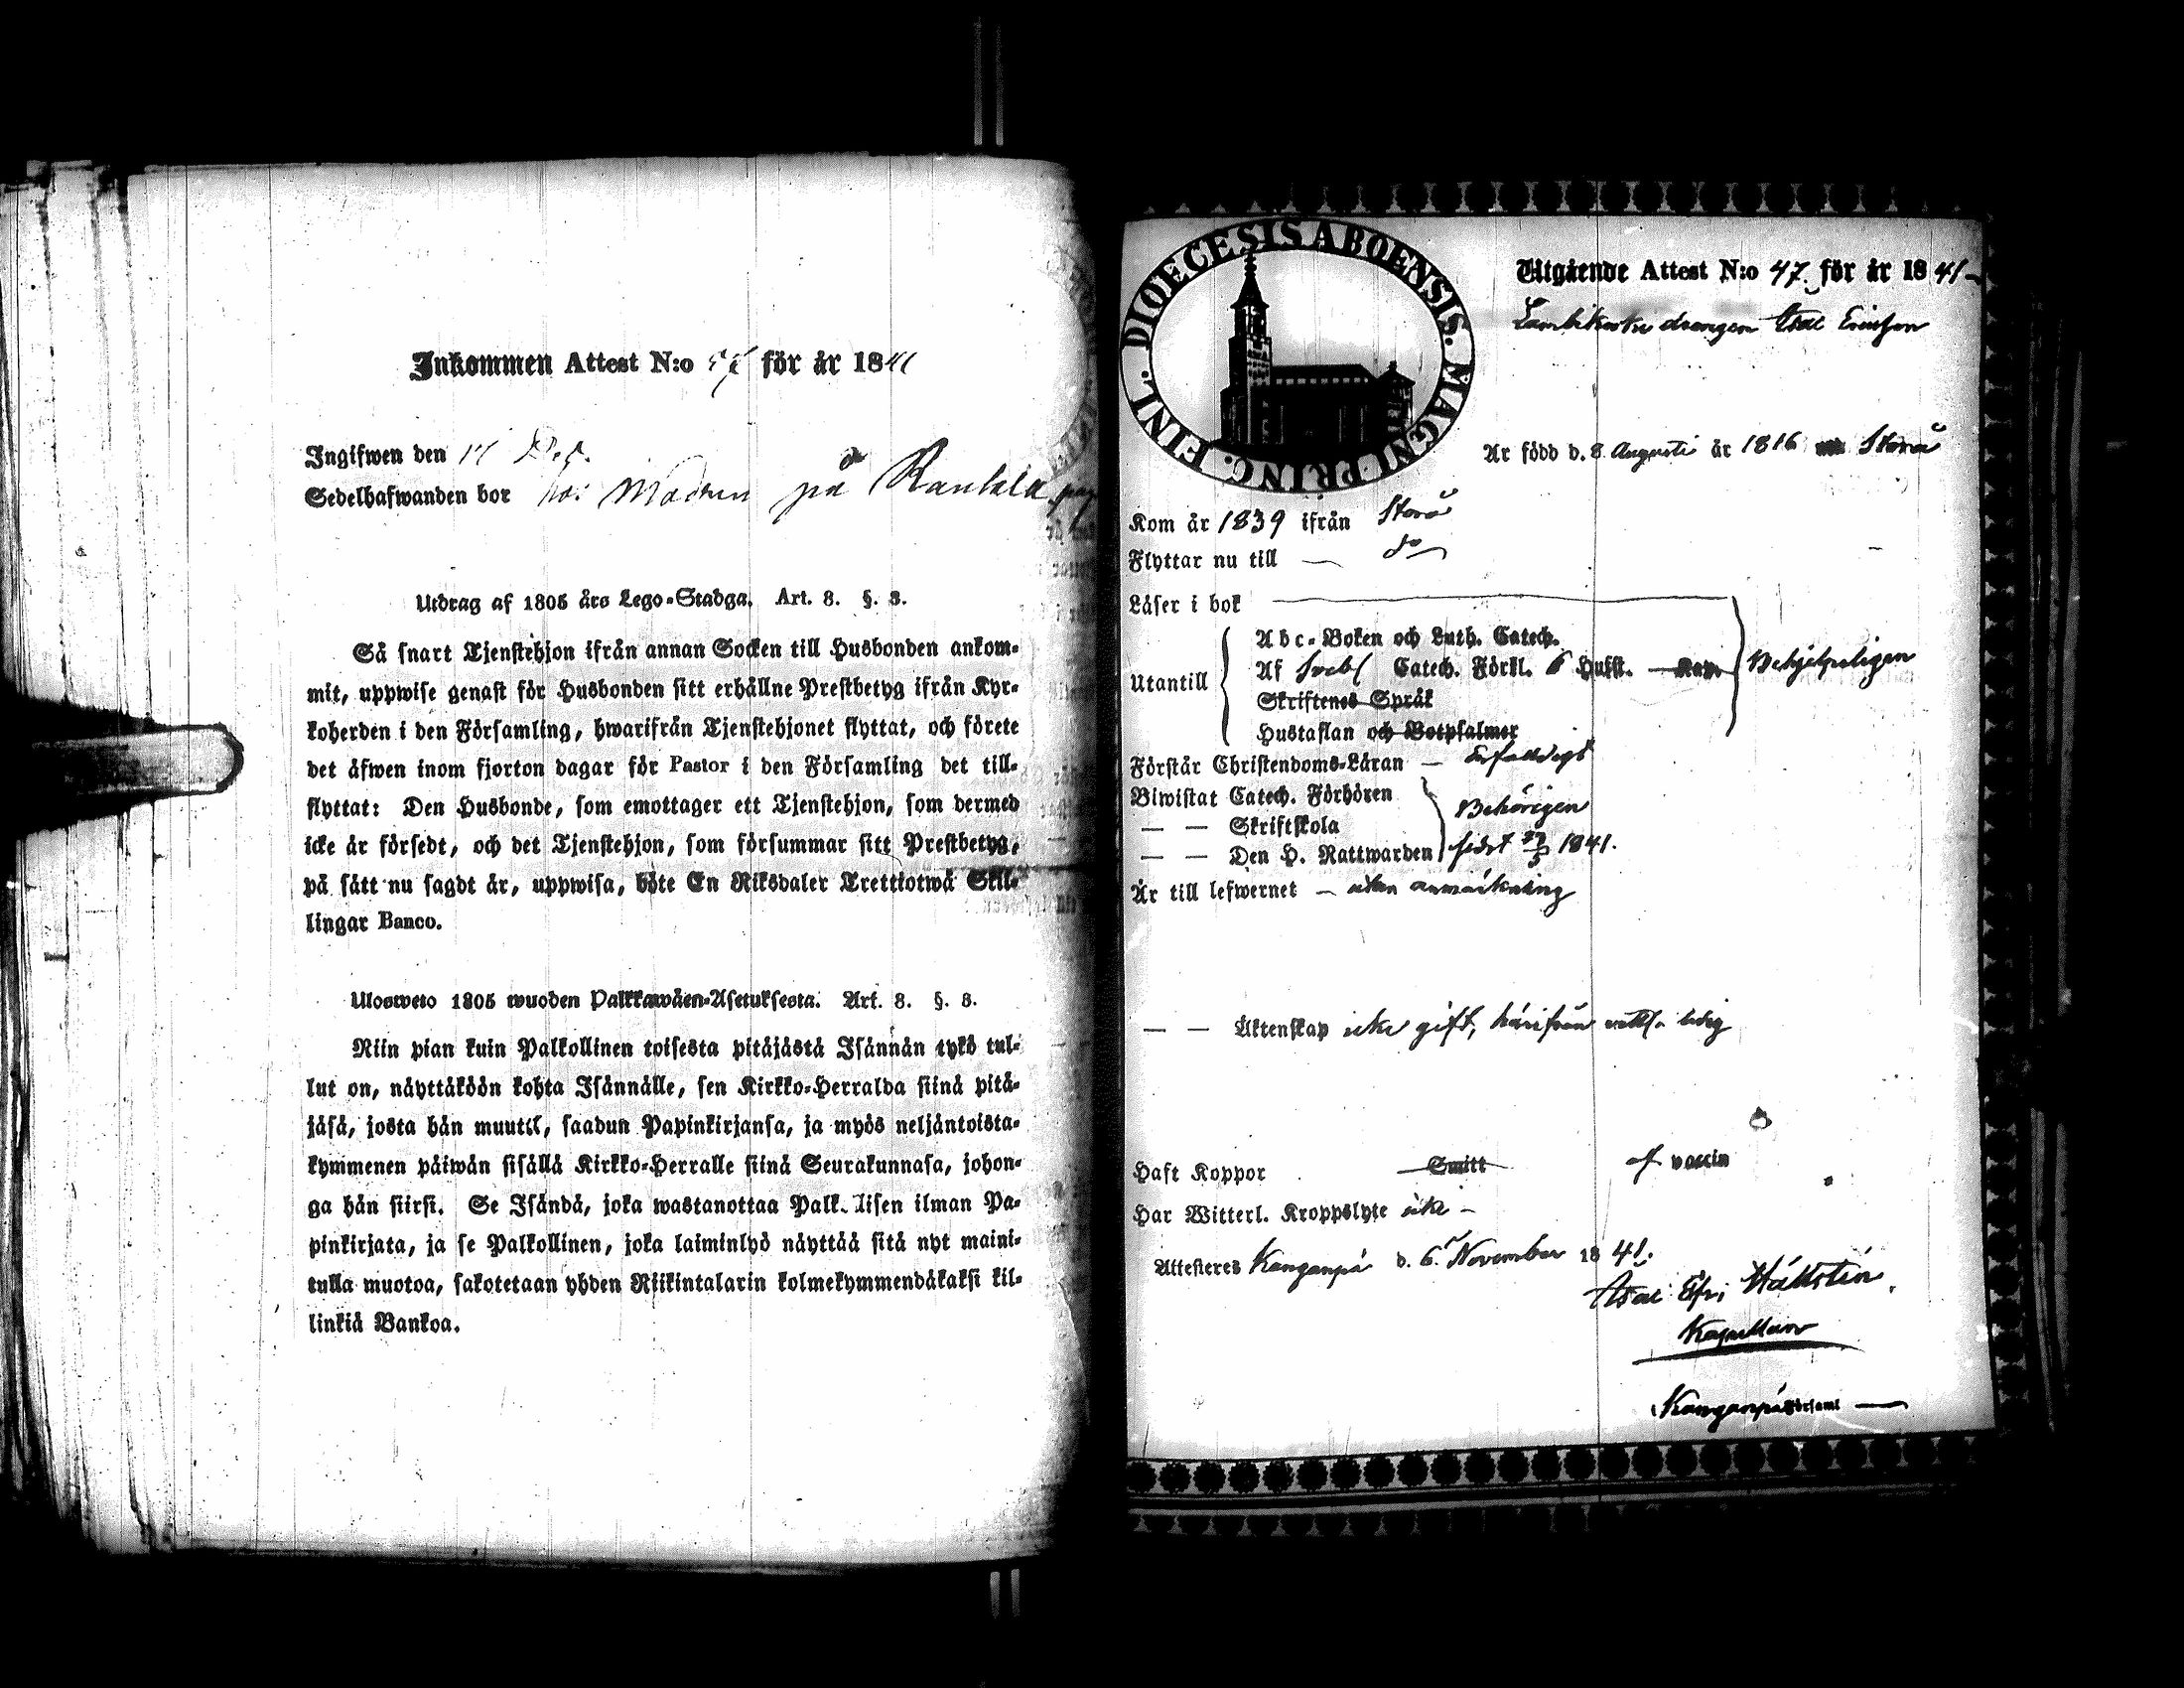 Inkommen Attest N:o för år 1841
Ingifwen den Dec.
Sedelhafwanden bor hos Modren på Rantala
Utdrag af 1805 års Lego-Stadga. Art. 8. §. 3.
Så snart Tjenstehjon ifrån annan Socken till Husbonden ankom-
mit, uppwise genast för Husbonden sitt erhållne Prestbetyg ifrån Kyr-
koherden i den Församling, hwarifrån Tjenstehjonet flyttat, och förete
det äfwen inom fjorton dagar för Pastor i den Församling det till-
flyttat: Den Husbonde, som emottager ett Tjenstehjon, som dermed
icke är försedt, och det Tjenstehjon, som försummar sitt Prestbetyg,
på sätt nu sagdt är, uppwisa, böte En Riksdaler Trettiotwå Skil-
lingar Banco.
Ulosweto 1805 wuoden Palkkawäen-Asetuksesta. Art. 8. §. 3.
Niin pian kuin Palkollinen toisesta pitäjästä Isännän tykö tul-
lut on, näyttäköön kohta Isännälle, sen Kirkko-Herralda siinä pitä-
jäsä, josta hän muutti, saadun Papinkirjansa, ja myös neljäntoista-
kymmenen päiwän sisällä Kirkko-Herralle siinä Seurakunnasa, johon-
ga hän siirsi. Se Isändä, joka wastanottaa Palk. lisen ilman Pa-
pinkirjata, ja se Palkollinen, joka laiminlyö näyttää sitä nyt maini-
tulla muotoa, sakotetaan yhden Riikintalarin kolmekymmendäkaksi kil-
linkiä Bankoa.
DIOECESIS ABOENSIS. MAGNI PRINC. FINL.
Utgående Attest N:o 47. för år 1841
drengen Isac Ericsson
Är född d. 8 Augusti år 1816 Storå
Kom år 1839 ifrån Storå
Flyttar nu till — do
Läser i bok
Utantill
Abc-Boken och Luth. Catech.
Af Svebl Catech. Förkl. 6 Hufst. Kap.
Skriftenes Språk
Hustaflan och Botpsalmer
Behjelpeligen
Förstår Christendoms-Läran — enfaldigt
Biwistat Catech. Förhören
— — Skriftskola
— — Den H. Nattwarden
Behörigen
sidst 23/5 1841.
Är till lefwernet — utan anmärkning
— — Äktenskap icke gift, härifrån ledig
Haft Koppor Smitt af vaccin
Har Witterl. Kroppslyte icke —
Attesteres Kanganpä d. 6 November 1841.
Isac Efr; Hállstén.
Kapellan
Kanganpä församl —